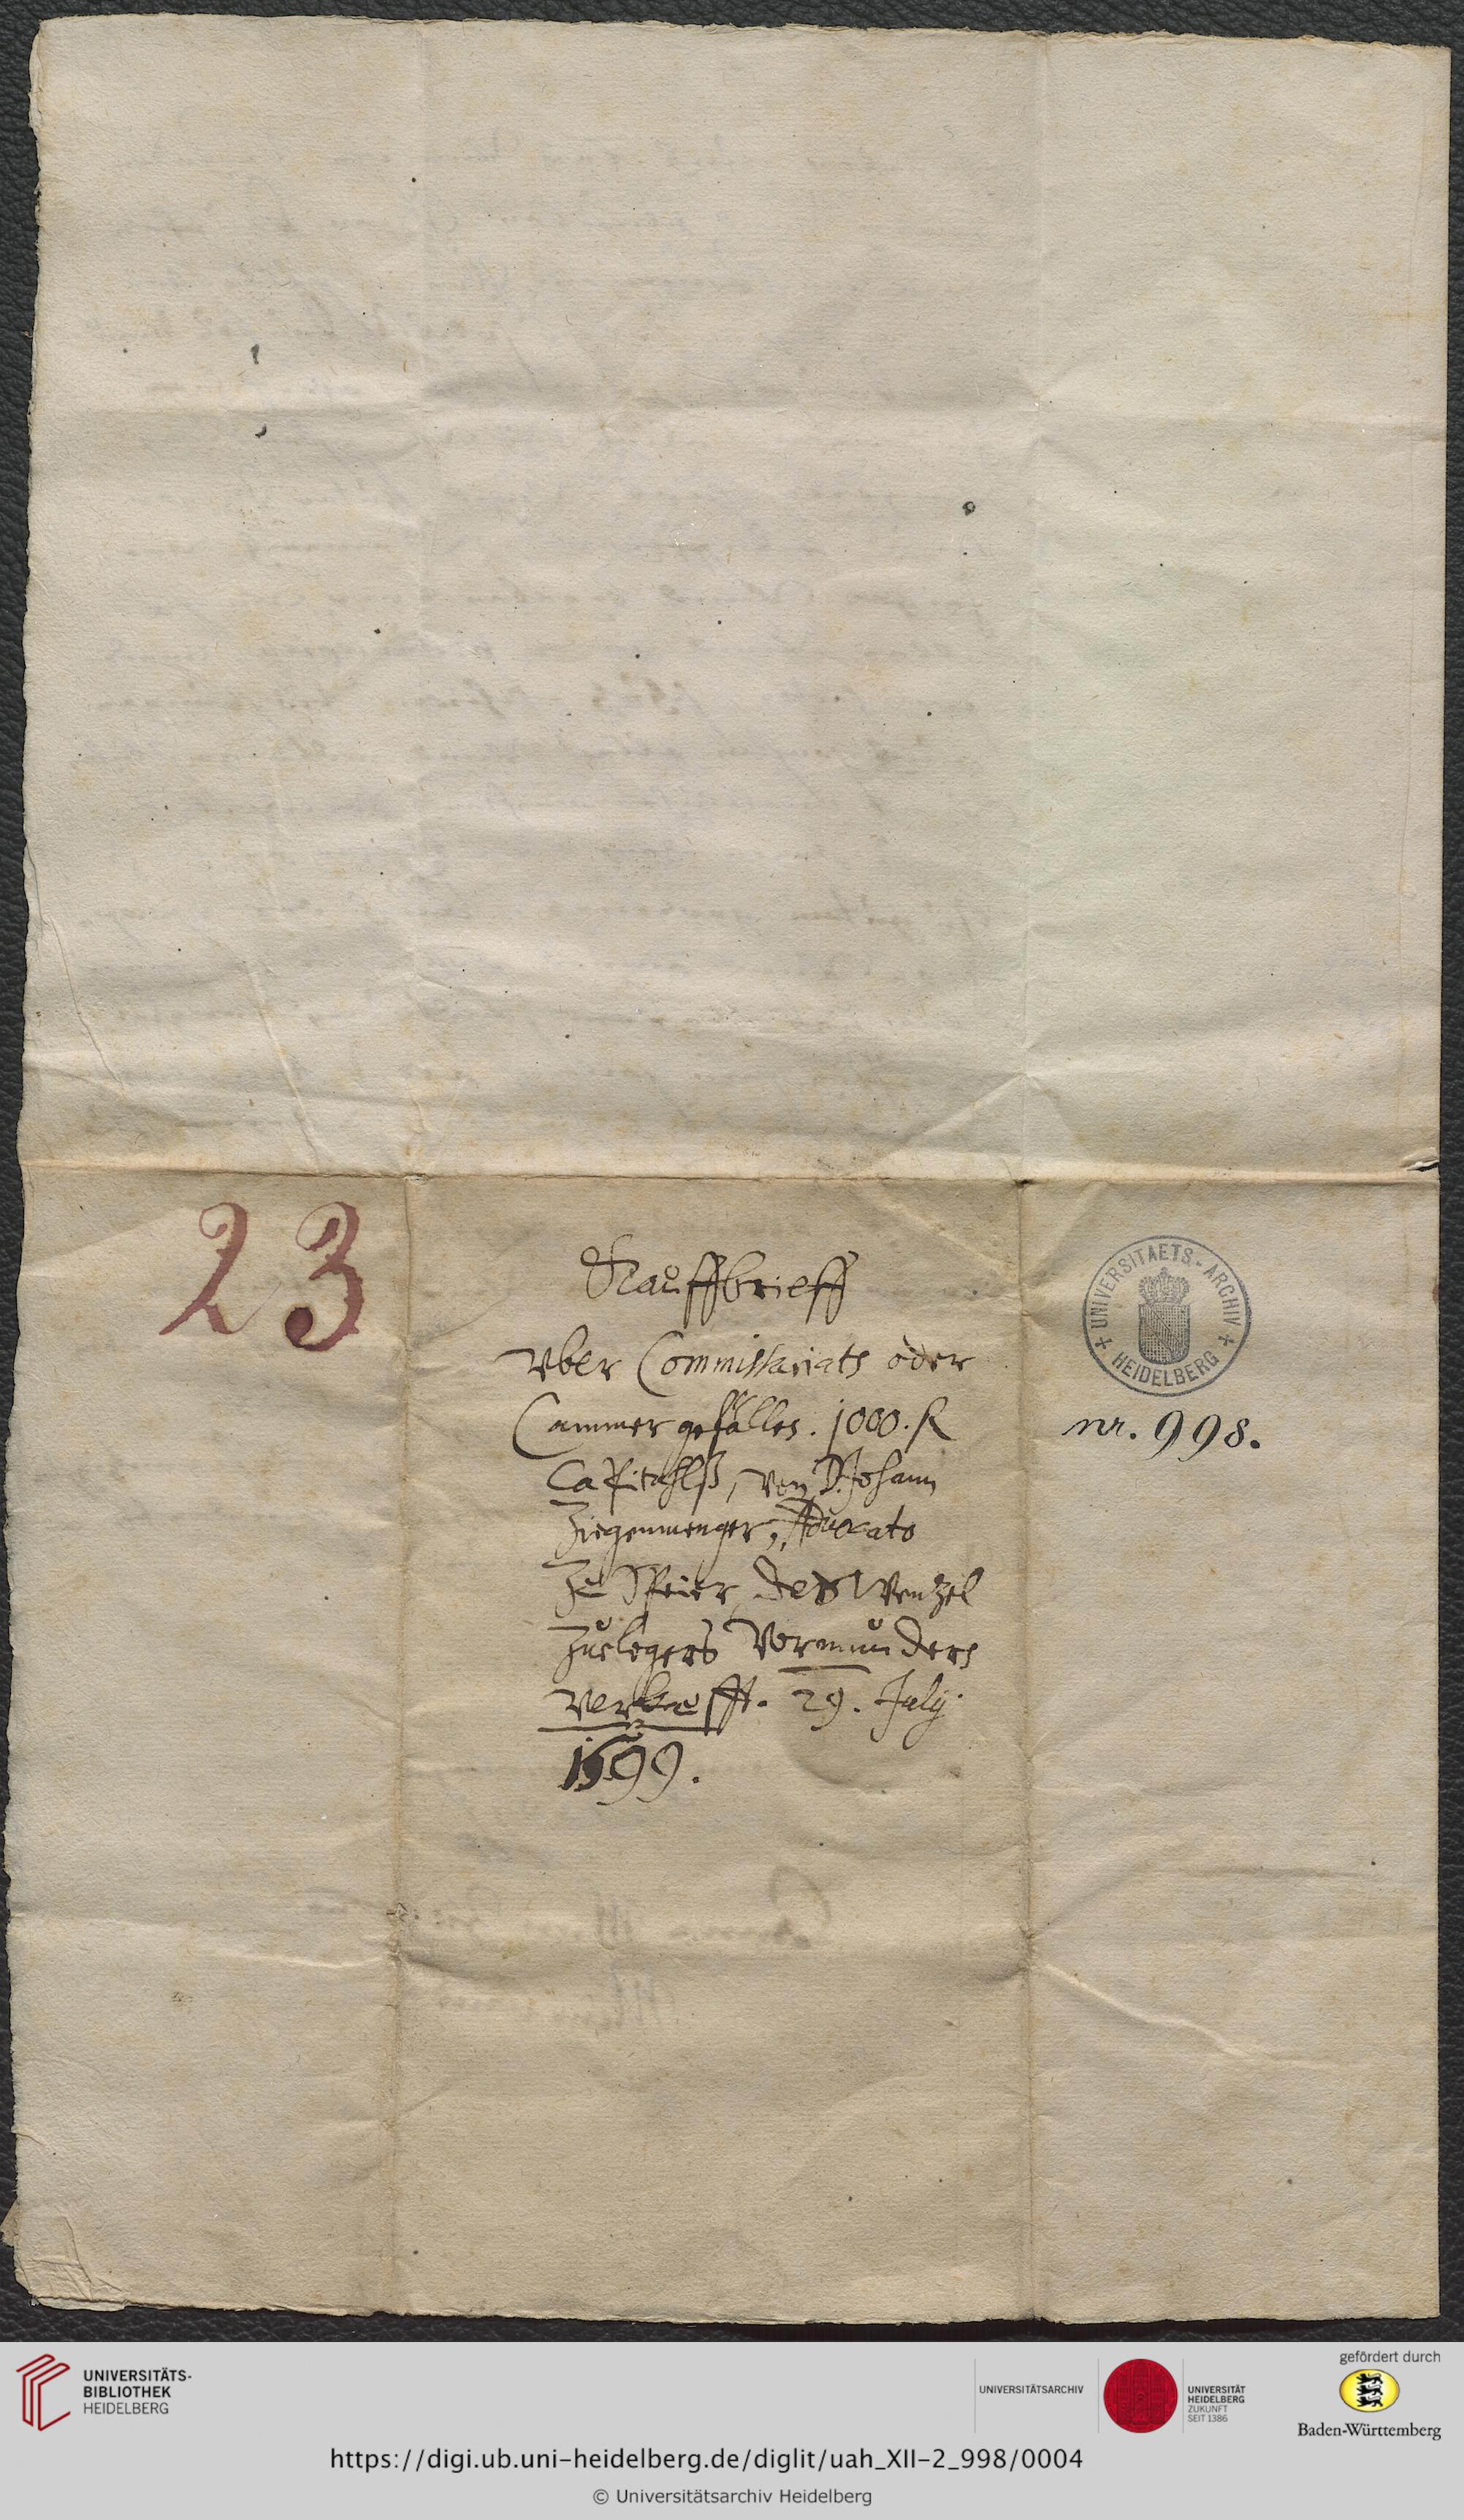 23
Kauffbrieff
vber Commissariats oder
Cammer gefälles. 1000. fl
Capitahlß, von D. Johann
Ziegenmenger, Advocato
Zu Speier, des Wentzel
Zuelegers Vormunders
verkaufft. 29. July.
1599.
UNIVERSITAETS-ARCHIV
HEIDELBERG
nr. 998.
UNIVERSITÄTS-
BIBLIOTHEK
HEIDELBERG
UNIVERSITÄTSARCHIV
UNIVERSITÄT
HEIDELBERG
ZUKUNFT
SEIT 1386
gefördert durch
Baden-Württemberg
https://digi.ub.uni-heidelberg.de/diglit/uah_XII-2_998/0004
© Universitätsarchiv Heidelberg